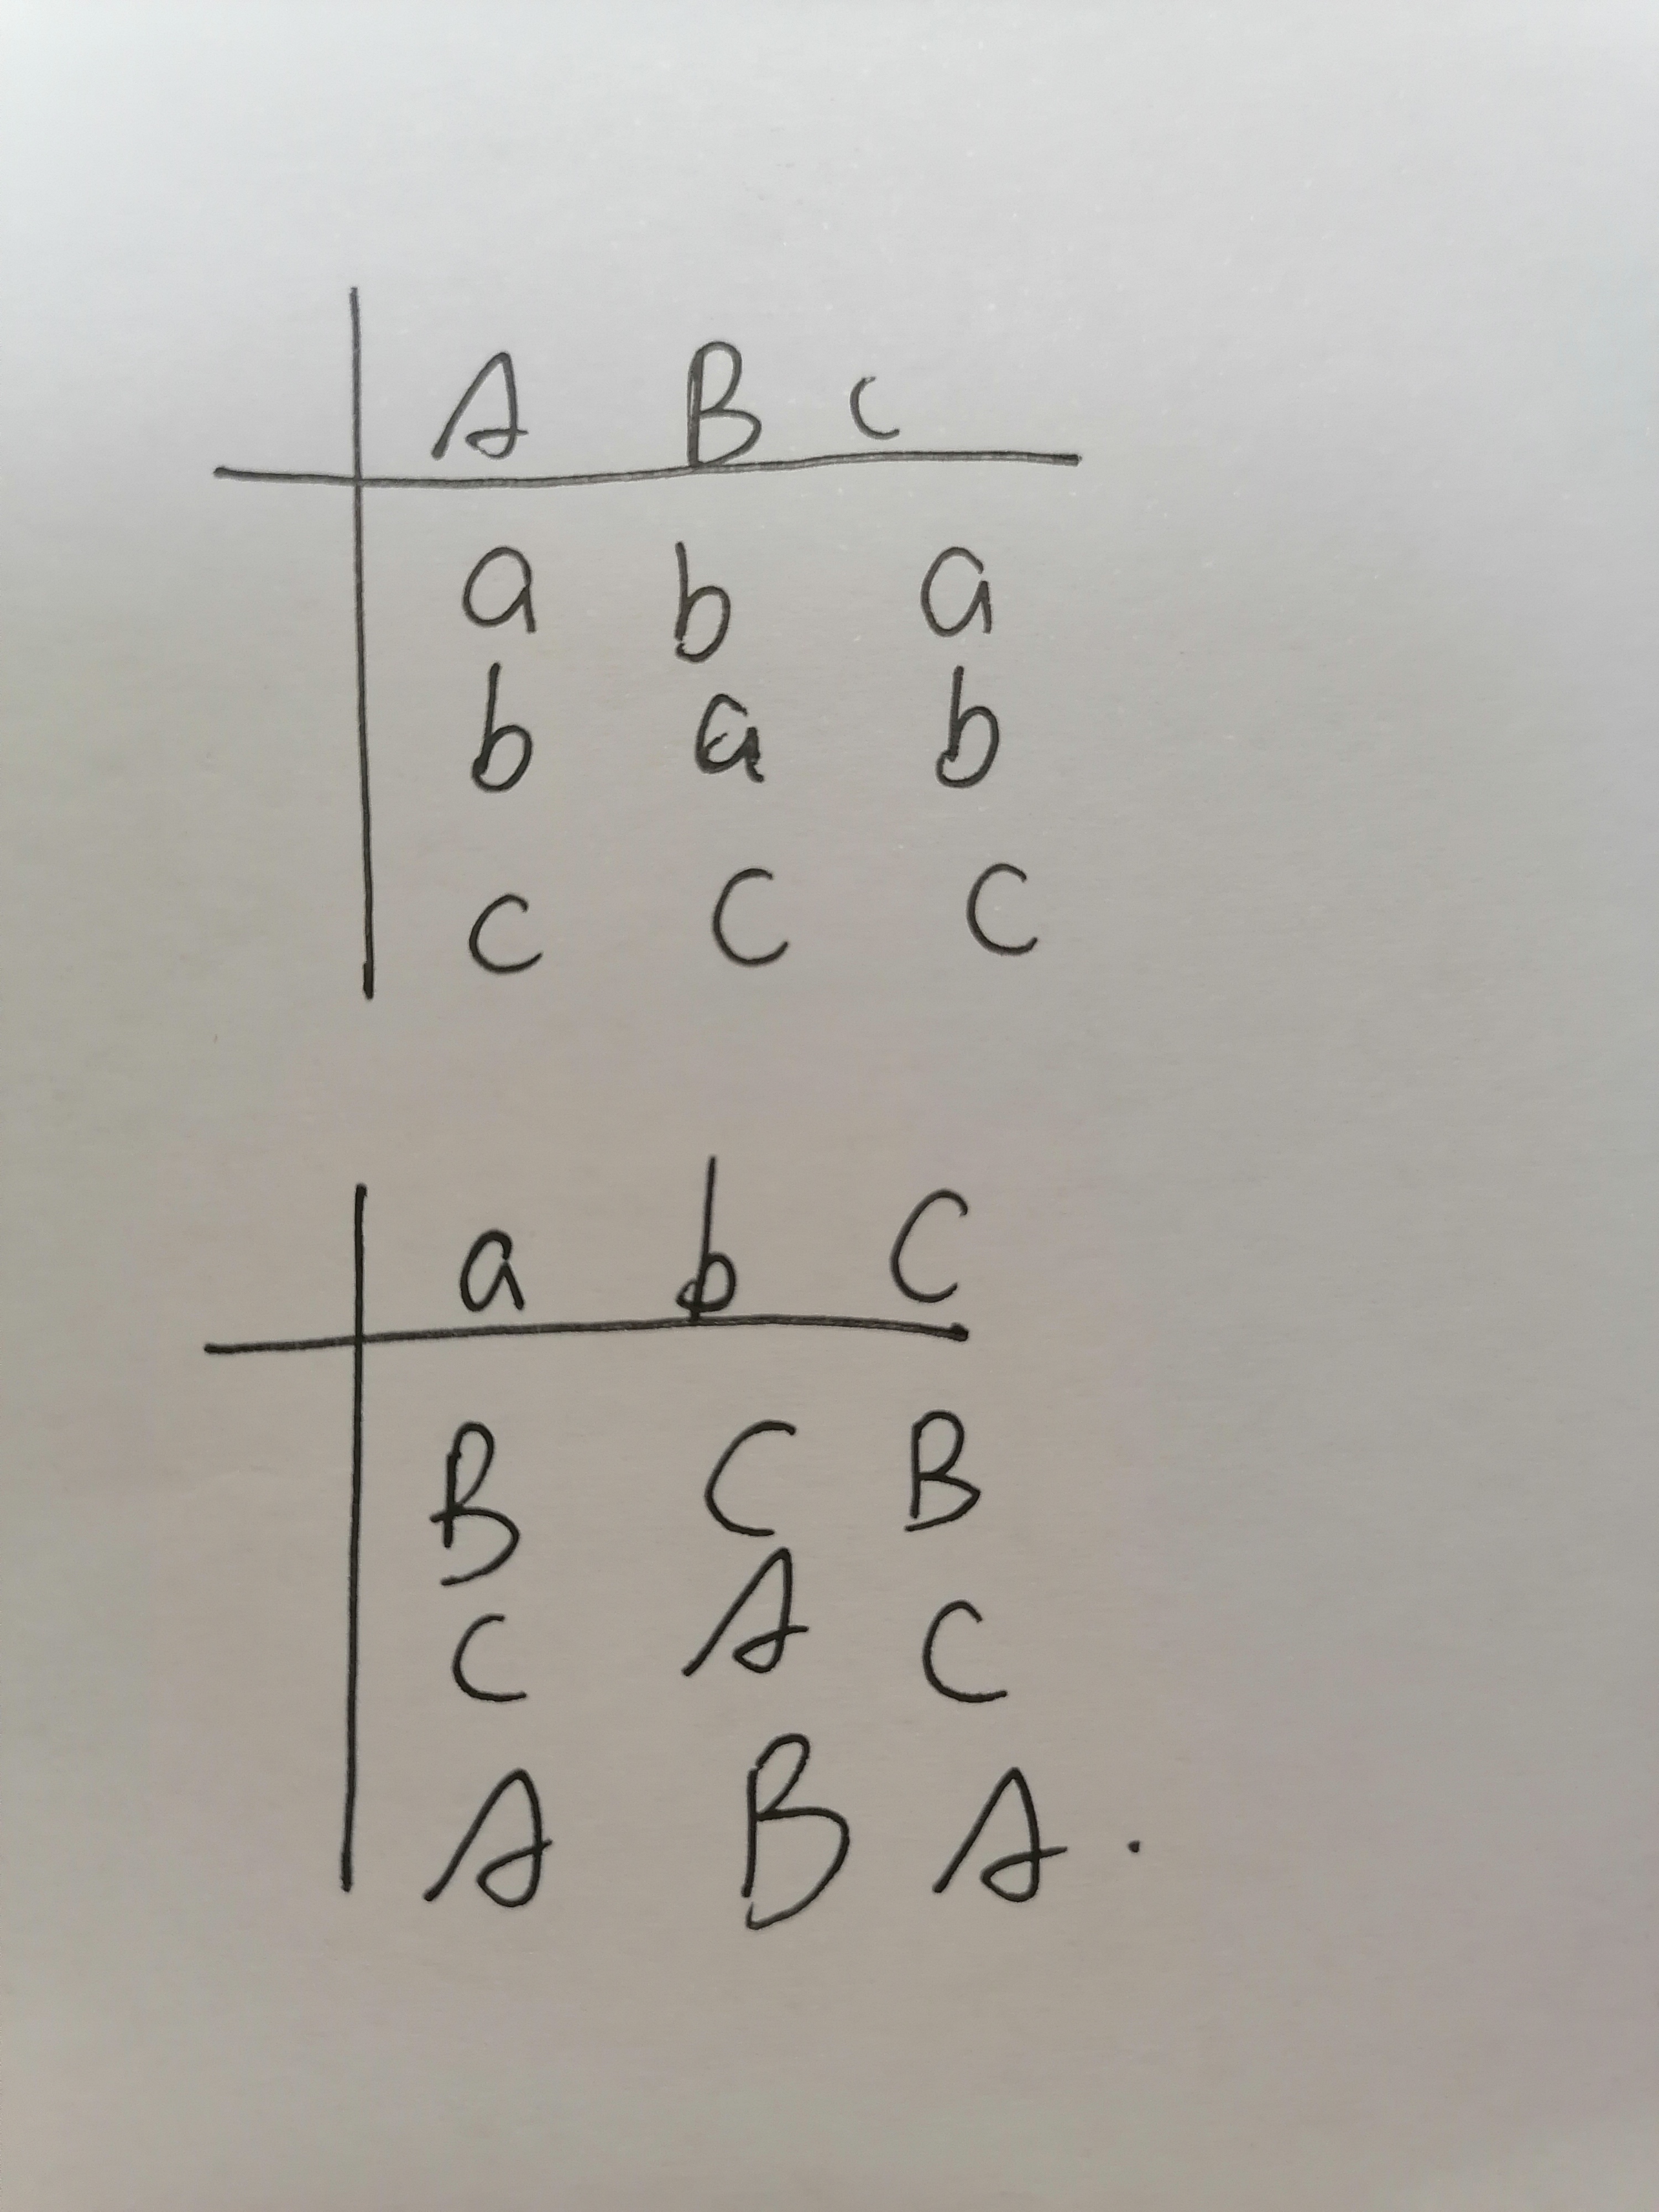 A B c
a b a
b a b
c c c
a b c
B C B
C A C
A B A .